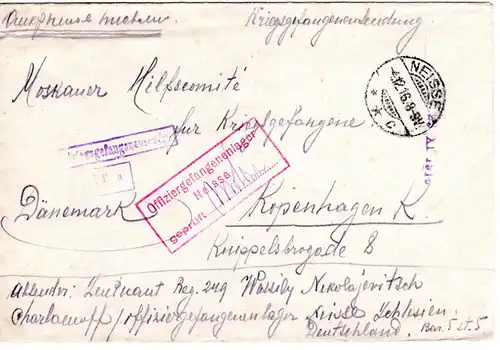 Открытое письмо. Kriegsgefangenensendung
NEISSE
4.12.16.8-9V.
Moskauer Hilfscomité
für Kriegsgefangene
Kriegsgefangenensendung
Offiziergefangenenlager
Neisse
Geprüft
Dänemark
Kopenhagen K.
Knippelsbrogade 8
Absender: Leutnant Reg. 249 Wassily Nikolajevitsch
Charlamoff / Offiziergefangenenlager Neisse Schlesien.
Deutschland. Bar. 5 st. 5